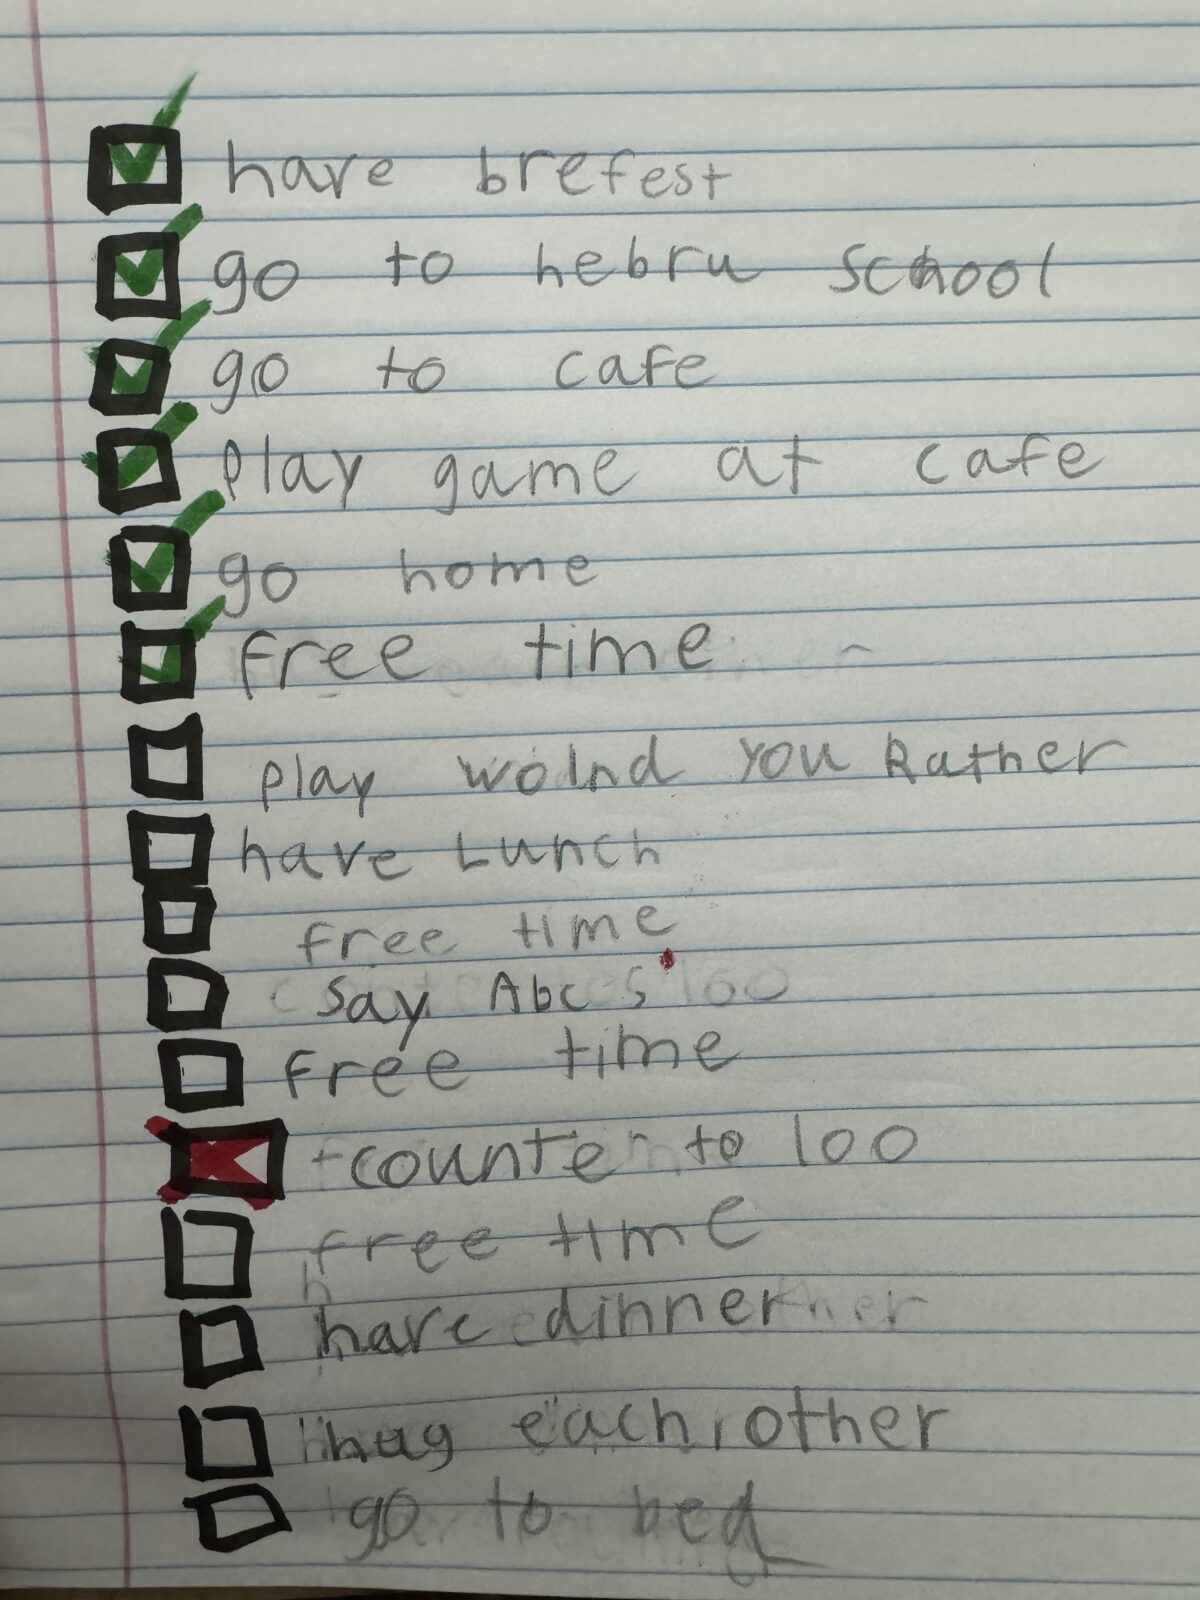 have brefest
go to hebru school
go to cafe
play game at cafe
go home
free time
play wolnd you Rather
have Lunch
free time
say Abc s
free time
counte to 100
free time
have dinner
hug each other
go to bed